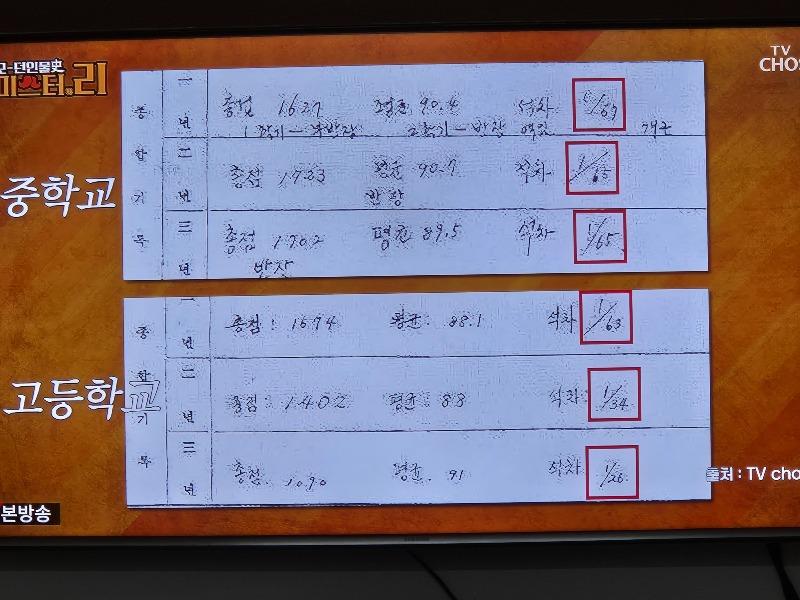 모-던인물史
미스터.리
TV
CHOS
중학교
종합기록
一년 총점 1627 평균 90.4 석차 /67
1학기 - 부반장 2학기 - 반장
二년 총점 1723 평균 90.7 석차
三년 총점 1702 평균 89.5 석차 1/65
반장
고등학교
종합기록
一년 총점: 1674 평균: 88.1 석차 1/63
二년 총점: 1402 평균: 88 석차: 1/34
三년 총점. 1090 평균. 91 석차: 1/26
출처 : TV cho
본방송